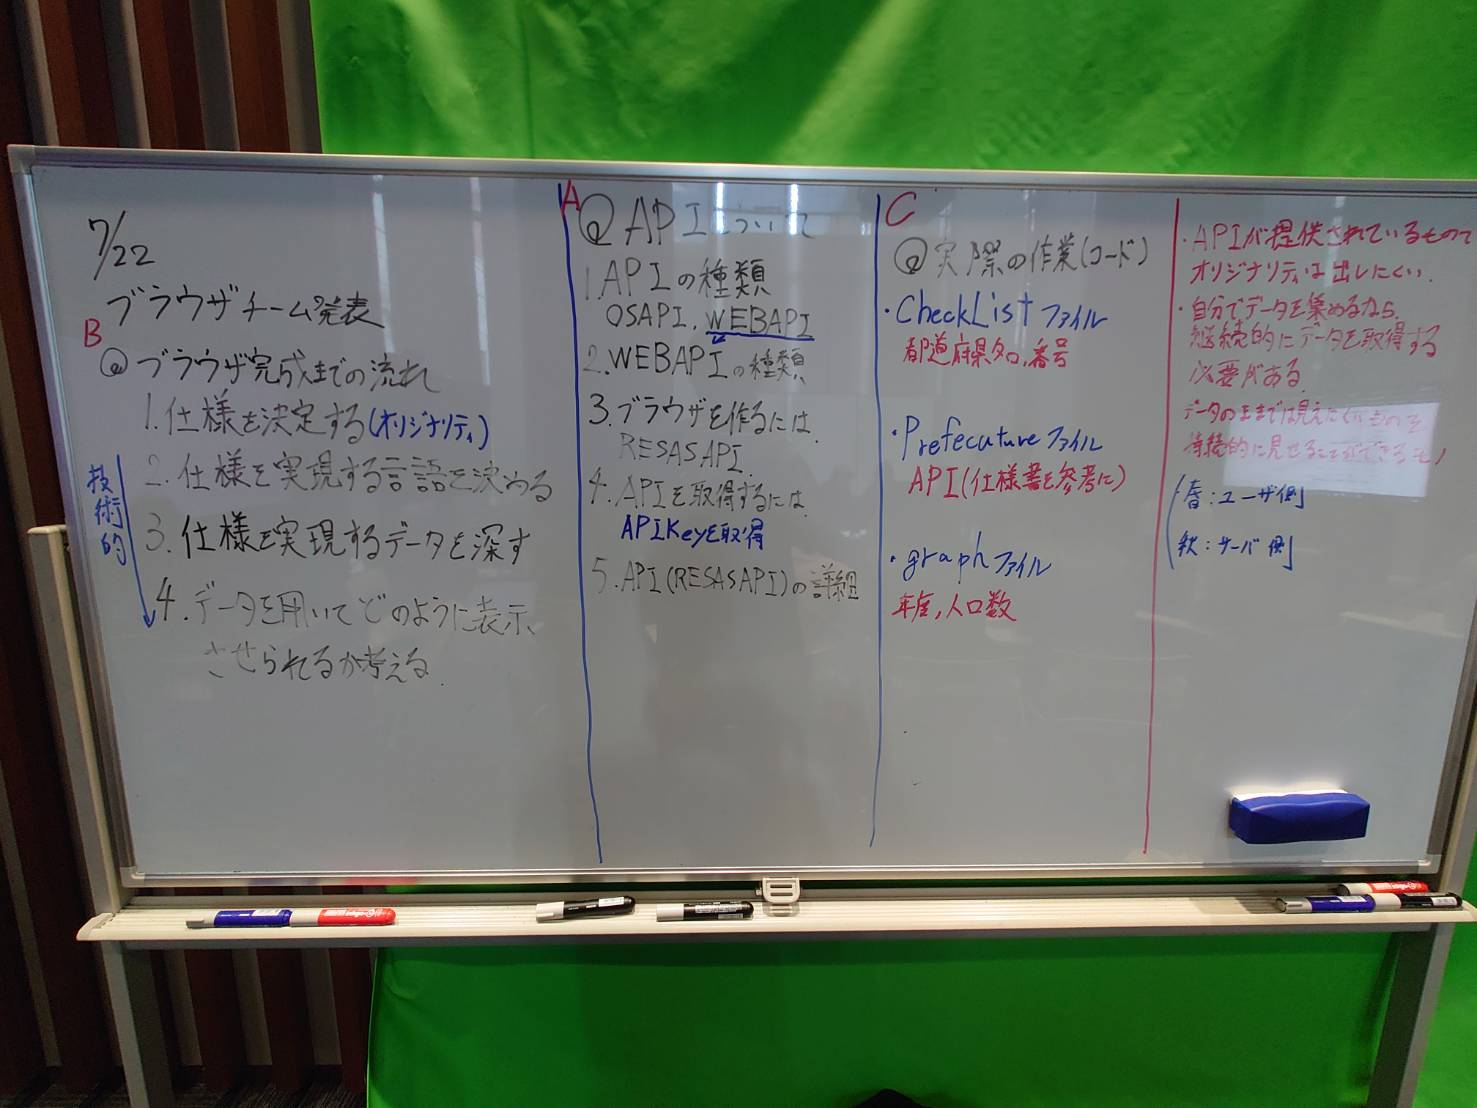 7/22
ブラウザチーム発表
B
@ブラウザ完成までの流れ
1.仕様を決定する(オリジナリティ)
2.仕様を実現する言語を決める
3.仕様を実現するデータを深す
4.データを用いてどのように表示
させられるか考える
技術的
A
@APIについて
1.APIの種類
OSAPI,WEBAPI
2.WEBAPIの種類
3.ブラウザを作るには
RESASAPI
4.APIを取得するには
APIKeyを取得
5.API(RESASAPI)の詳細
C
@実際の作業(コード)
・CheckListファイル
都道府県名,番号
・Prefecutureファイル
API(仕様書を参考に)
・graphファイル
年度,人口数
・APIが提供されているもので
オリジナリティは出しにくい.
・自分でデータを集めるなら、
継続的にデータを取得する
必要がある.
データのままでは見えたくいものを
持続的に見せることができる
春:ユーザ側
秋:サーバ側